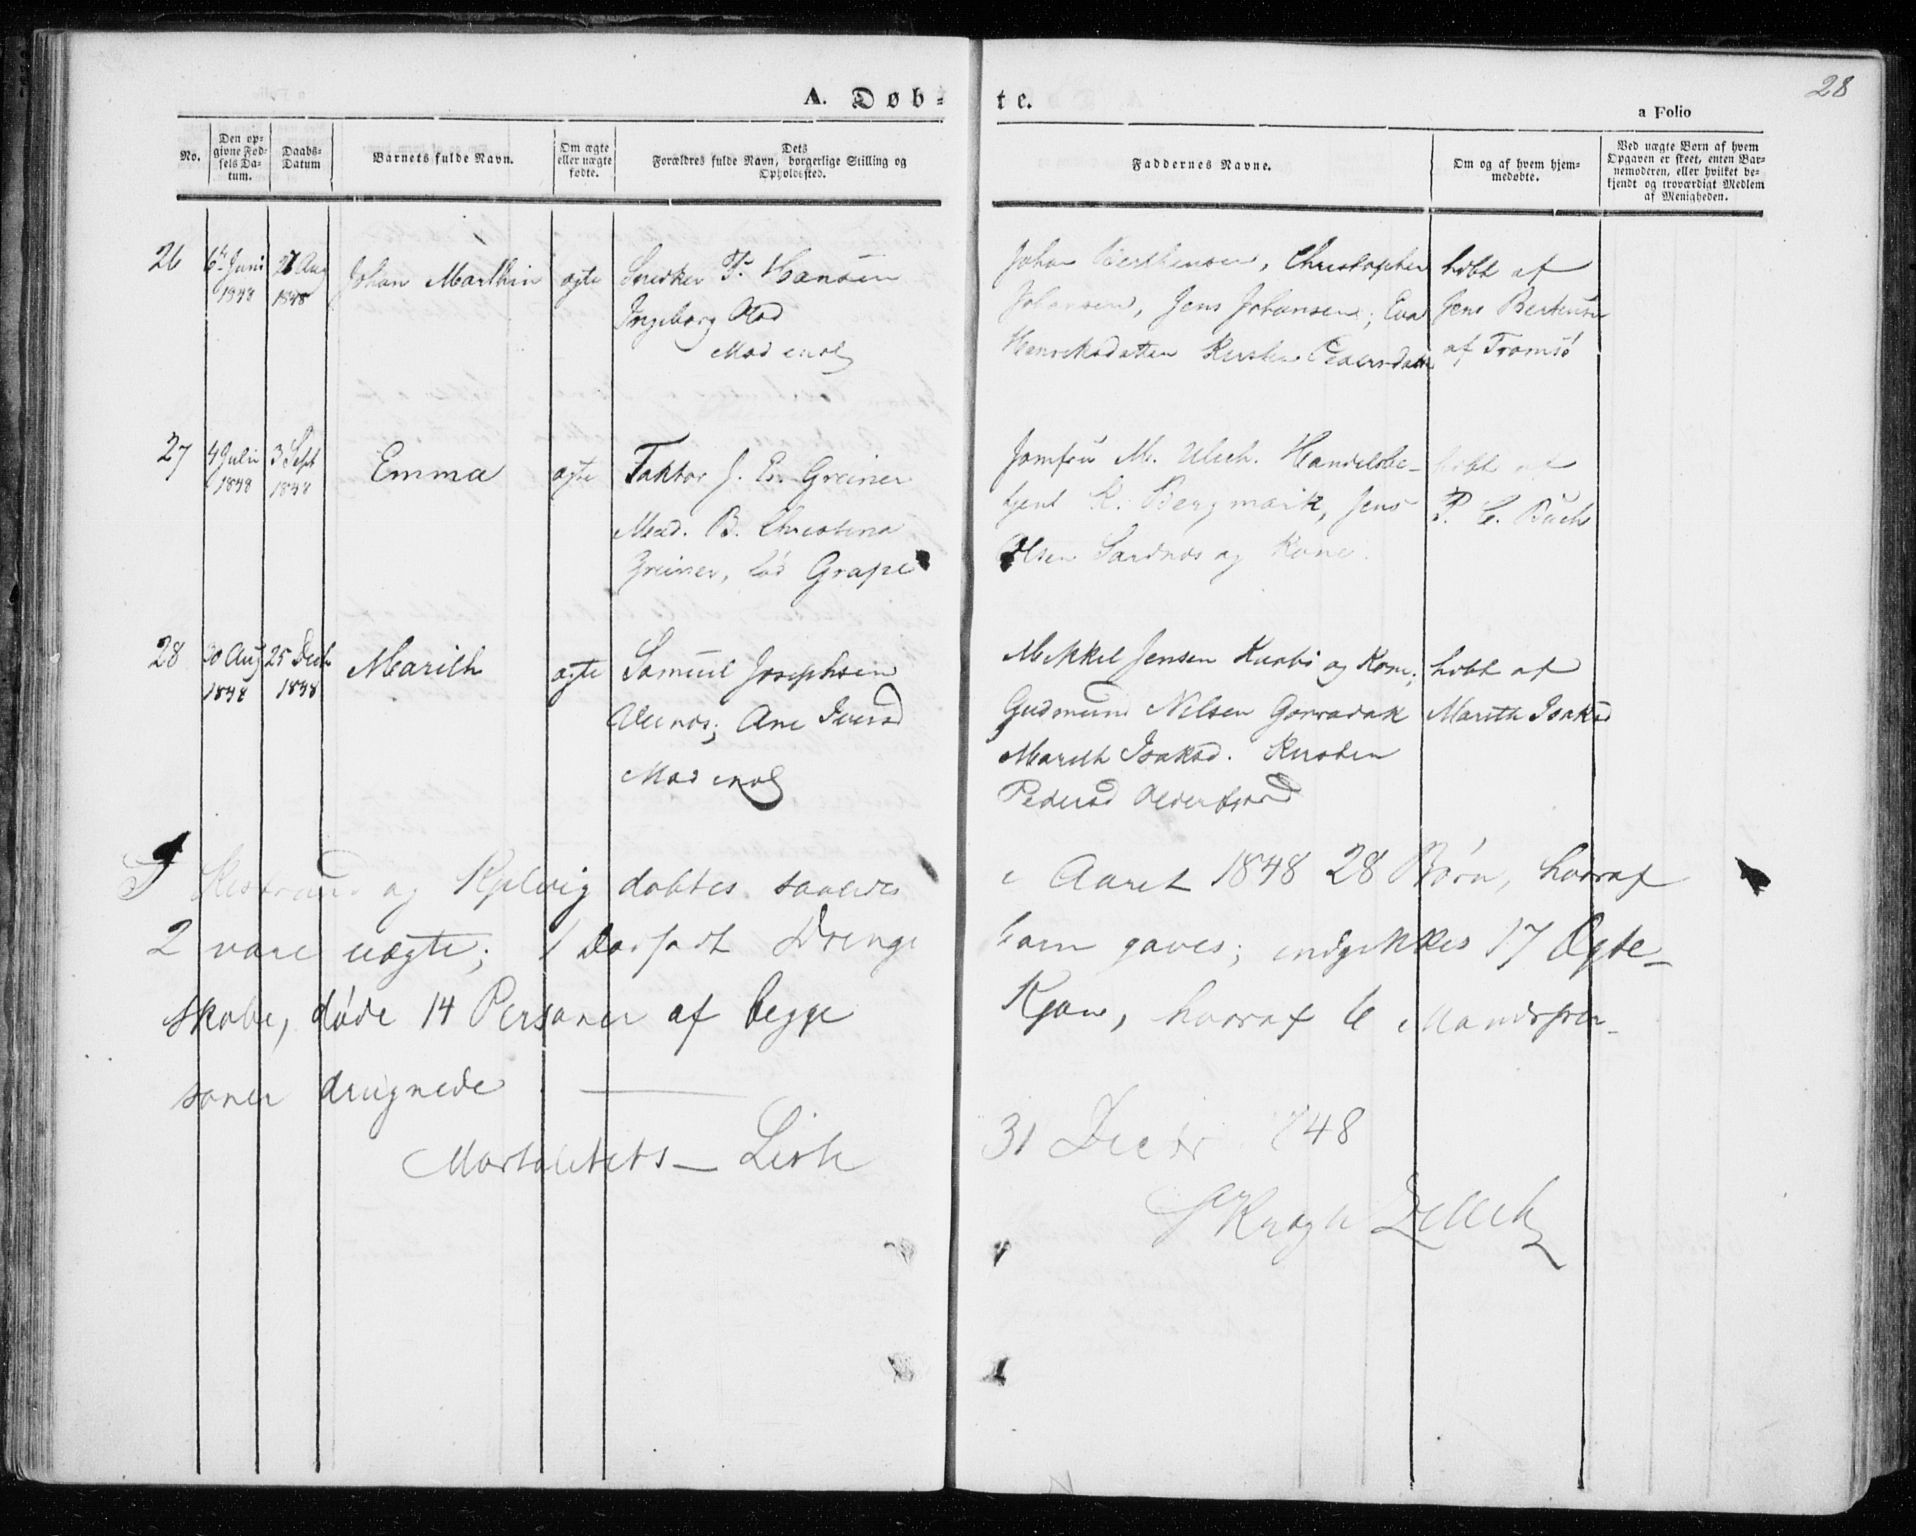 28
A. Døb-
te.
a Folio
No.
Den op-
givne Fød-
sels Da-
tum.
Daabs-
Datum
Barnets fulde Navn.
Om ægte
eller uægte
fødte.
Dets
Forældres fulde Navn, borgerlige Stilling og
Opholdssted.
Faddernes Navne.
Om og af hvem hjem-
medøbte.
Ved uægte Børn af hvem
Opgaven er skeet, enten Bar-
nemoderen, eller hvilket be-
kjendt og troværdigt Medlem
af Menigheden.
26
6te Juni
1848
27 Aug
1848
Johan Marthin
ægte
Snedker T. Hansen
Ingeborg Olsd
Johan Berthensen, Christopher
Johansen, Jens Johansen, Eva
Henriksdatter Kirsten Pedersdatter
hdbt af
Jens Bertensen
af Tromsø
27
4 Julii
1848
3 Sept
1848
Emma
ægte
Faktor J. E. Greiner
Mad. B. Christina
Greiner, fød Grape
Jomfru M. Ulich. Handelsbe-
tjent K. Bergmark, Jens
Olsen Sandnæs og Kone.
hdbt af
P. C. Buch
28
20 Aug
1848
25 Decb
1848
Marith
ægte
Samuel Josephsen
Ane Iversd
Mikkel Jensen og Kone;
Gudmund Nilsen
Marith Isaksd. Kirsten
Pedersd Olderfjord
hdbt af
Marith Isaksd
I Kistrand og Kjelvig døbtes saaledes
i Aaret 1848 28 Børn, hvoraf
2 vare uægte; 1 dødfødt Drenge
barn gaves; indgikkes 17 Ægte-
skaber, døde 14 Personer af begge
Kjøn, hvoraf 6 Mandsper-
soner druknede
Mortalitets-Liste
31 Decbr 1848
Krogh Zetlitz